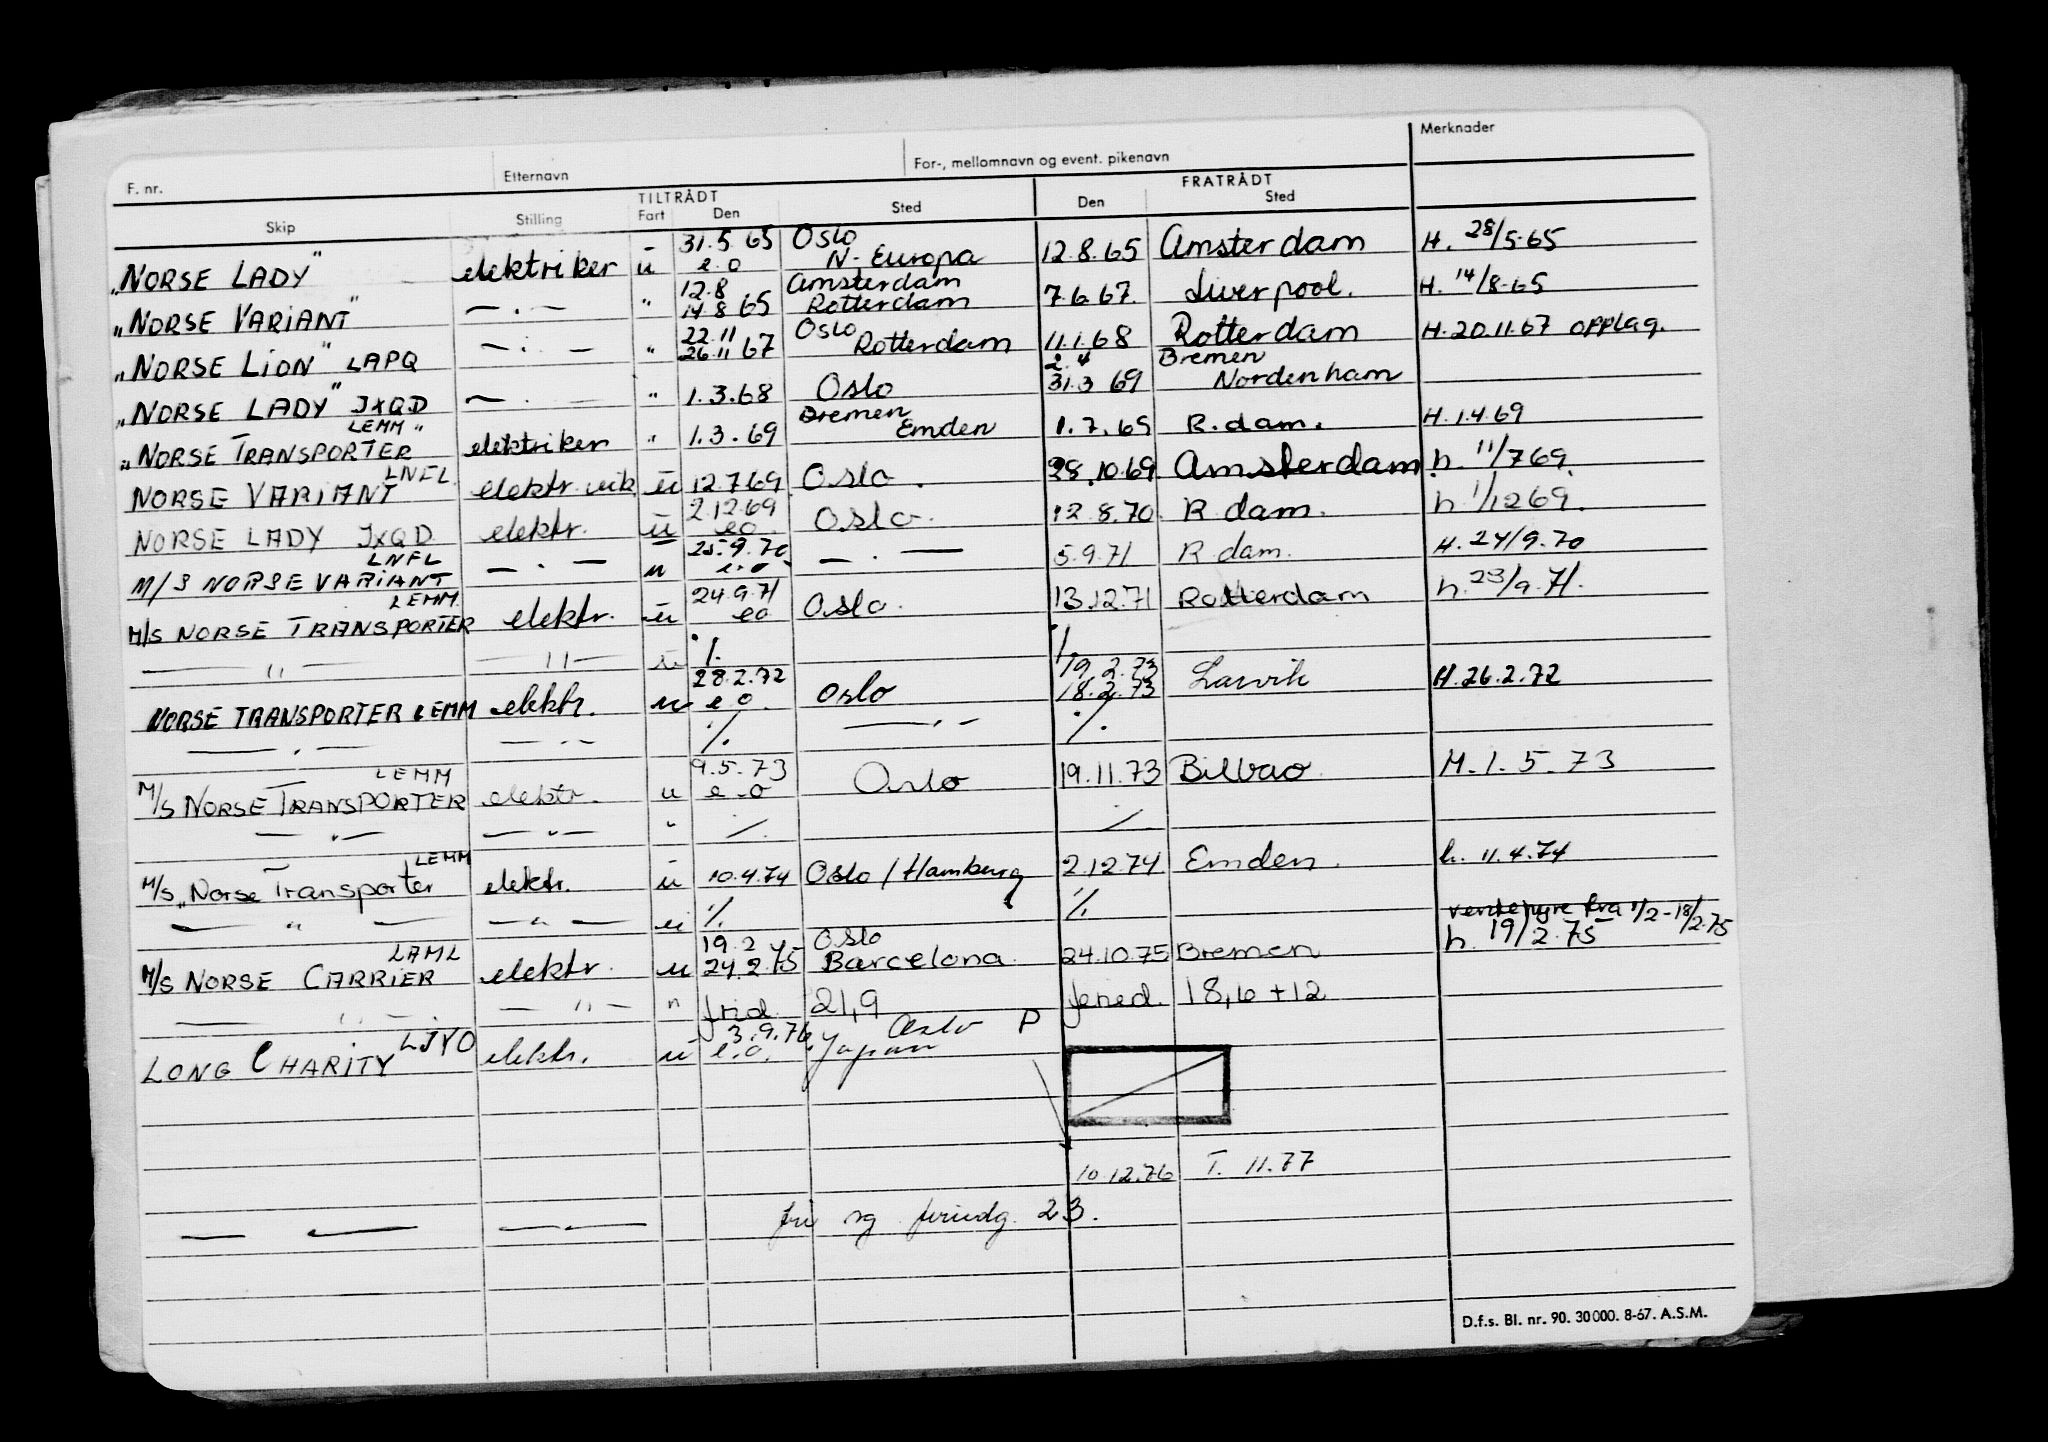 F. nr. Etternavn For-, mellomnavn og event. pikenavn Merknader
TILTRÅDT FRATRÅDT
Skip Stilling Fart Den Sted Den Sted
31.5.65 Oslo
„NORSE LADY" elektriker u e.o N-Europa 12.8.65 Amsterdam H. 28/5-65
12.8 Amsterdam
„NORSE VARIANT" — . — " 14.8 65 Rotterdam 7.6.67. Liverpool. H. 14/8-65
22.11 Oslo
„NORSE LION" LAPQ — . — " 26.11 67 Rotterdam 11.1.68 Rotterdam H.20.11.67 opplag.
2.4 Bremen
„NORSE LADY" JXQD — . — " 1.3.68 Oslo 31.3 69 Nordenham
LEMM " Bremen
„NORSE TRANSPORTER elektriker " 1.3.69 Emden 1.7.69 R.dam. H.1.4.69
LNFL
NORSE VARIANT elektr. vik u 12.7.69 Oslo. 28.10.69 Amsterdam h. 11/7 69.
2.12.69
NORSE LADY JXQD elektr. u eo Oslo. 12.8.70 R dam. h 1/12 69.
LNFL 25.9.70
M/S NORSE VARIANT — . — u e.o. — . — 5.9.71 R dam. H. 24/9.70
LEMM 24.9.71
M/S NORSE TRANSPORTER elektr. u eo Oslo. 13.12.71 Rotterdam h. 23/9.71.
— " — — " — u ./. ./.
28.2.72 19.2.73
NORSE TRANSPORTER LEMM elektr. u e o. Oslo 18.2.73 Larvik H.26.2.72
— . — — . — ./. — . — ./.
LEMM 9.5.73
M/S NORSE TRANSPORTER elektr. u e.o Oslo 19.11.73 Bilbao H.1.5.73
— " — — " — " ./. ./.
LEMM
M/S „Norse Transporter elektr. u 10.4.74 Oslo / Hamburg 2.12.74 Emden. h. 11.4.74
— " — — " — u ./. ./. 1/2-18/2.75
LAML 19.2 Oslo h. 19/2.75
M/S NORSE CARRIER elektr. u 24.2.75 Barcelona 24.10.75 Bremen
— " — — " — " frid. 21,9 feried. 18,6 + 12
LJYO 3.9.76 Oslo P
LONG CHARITY elektr. u e.o. Japan
10.12.76 T. 11.77
— — — . — fri og feriedg. 23.
D.f.s. Bl. nr. 90. 30000. 8-67. A.S.M.